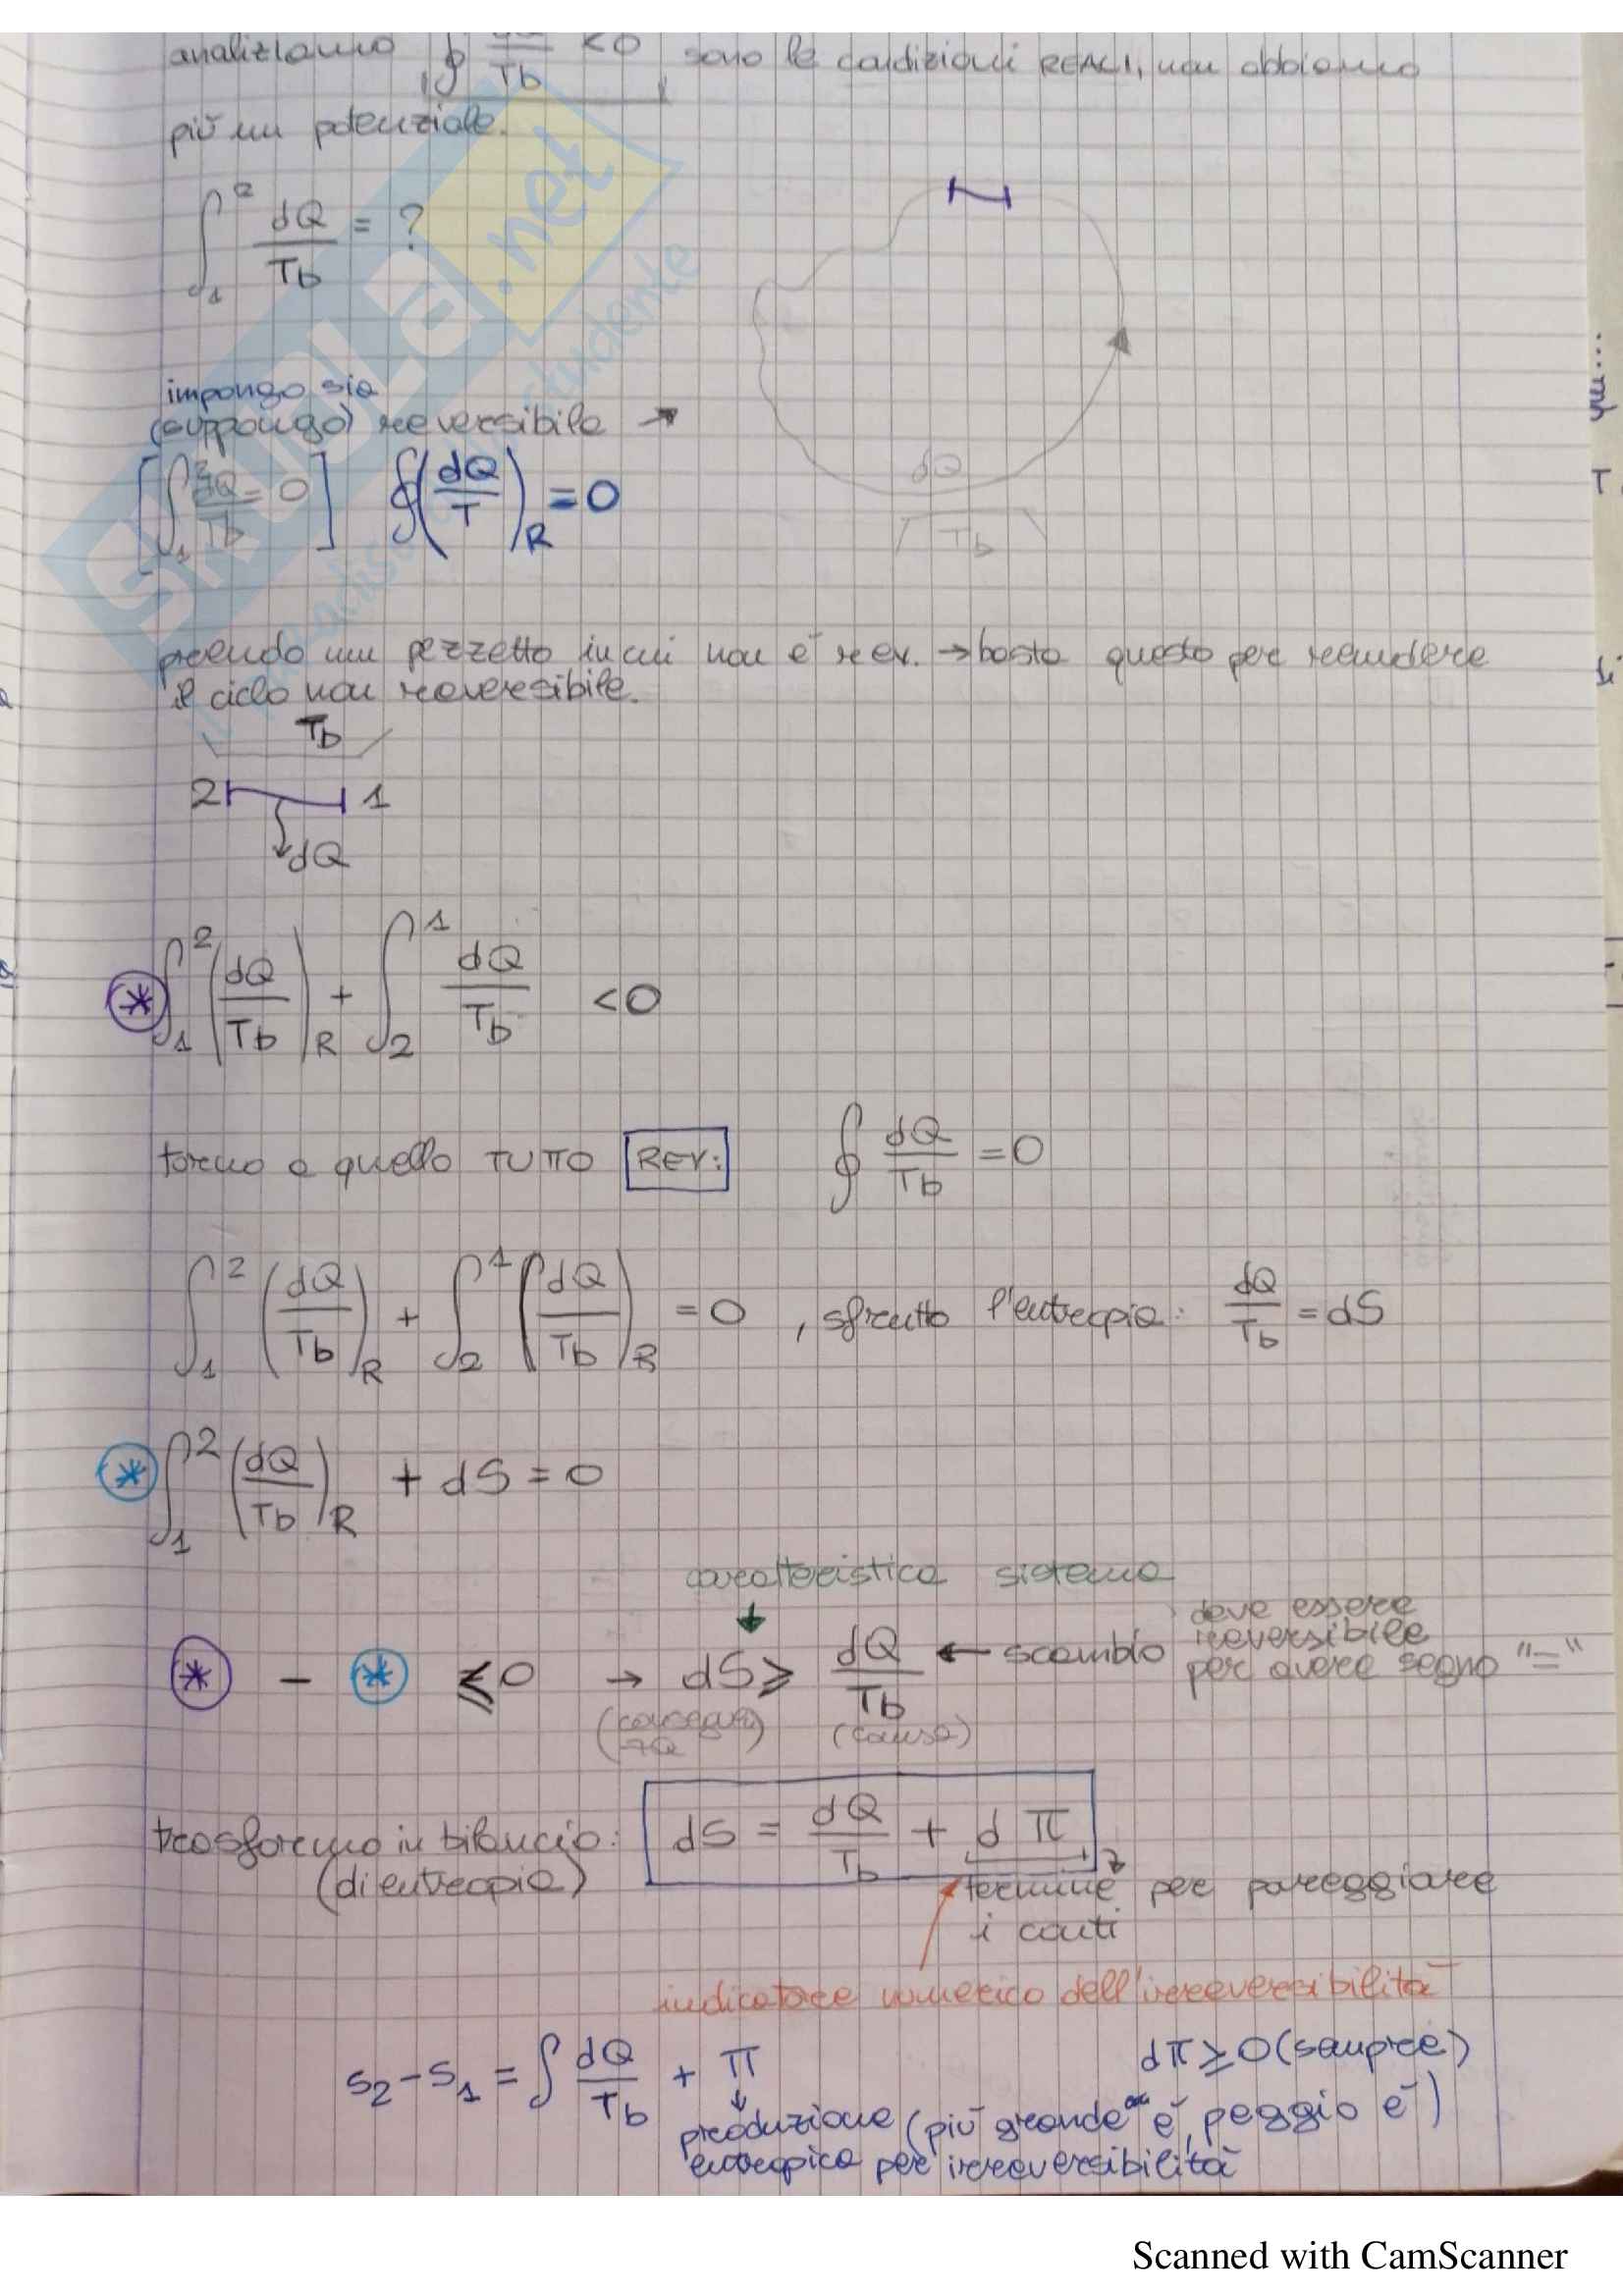 analizziamo ∮ dQ/Tb <0 sono le condizioni REALI, non abbiamo
più un potenziale.
∫₁² dQ/Tb = ?
impongo sia
(suppongo) reversibile →
[∫₁² dQ/Tb = 0] ∮(dQ/T)R = 0
dQ/Tb
prendo un pezzetto in cui non è rev. → basta questo per rendere
il ciclo non reversibile.
Tb
2 1
dQ
* ∫₁² (dQ/Tb)R + ∫₂¹ dQ/Tb <0
torno a quello TUTTO REV: ∮ dQ/Tb = 0
∫₁² (dQ/Tb)R + ∫₂¹ (dQ/Tb)R = 0 , sfrutto l'entropia: dQ/Tb = dS
* ∫₁² (dQ/Tb)R + dS = 0
caratteristica sistema
* - * ⩽0 → dS ⩾ dQ/Tb ← scambio deve essere
reversibile
per avere segno "="
(causa)
trasformo in bilancio: dS = dQ/Tb + dπ
(di entropia)
termine per pareggiare
i conti
indicatore numerico dell'irreversibilità
S₂-S₁ = ∫ dQ/Tb + π dπ ≥ 0 (sempre)
produzione (più grande è, peggio è)
entropica per irreversibilità
SKUOLa.net
studente
Scanned with CamScanner